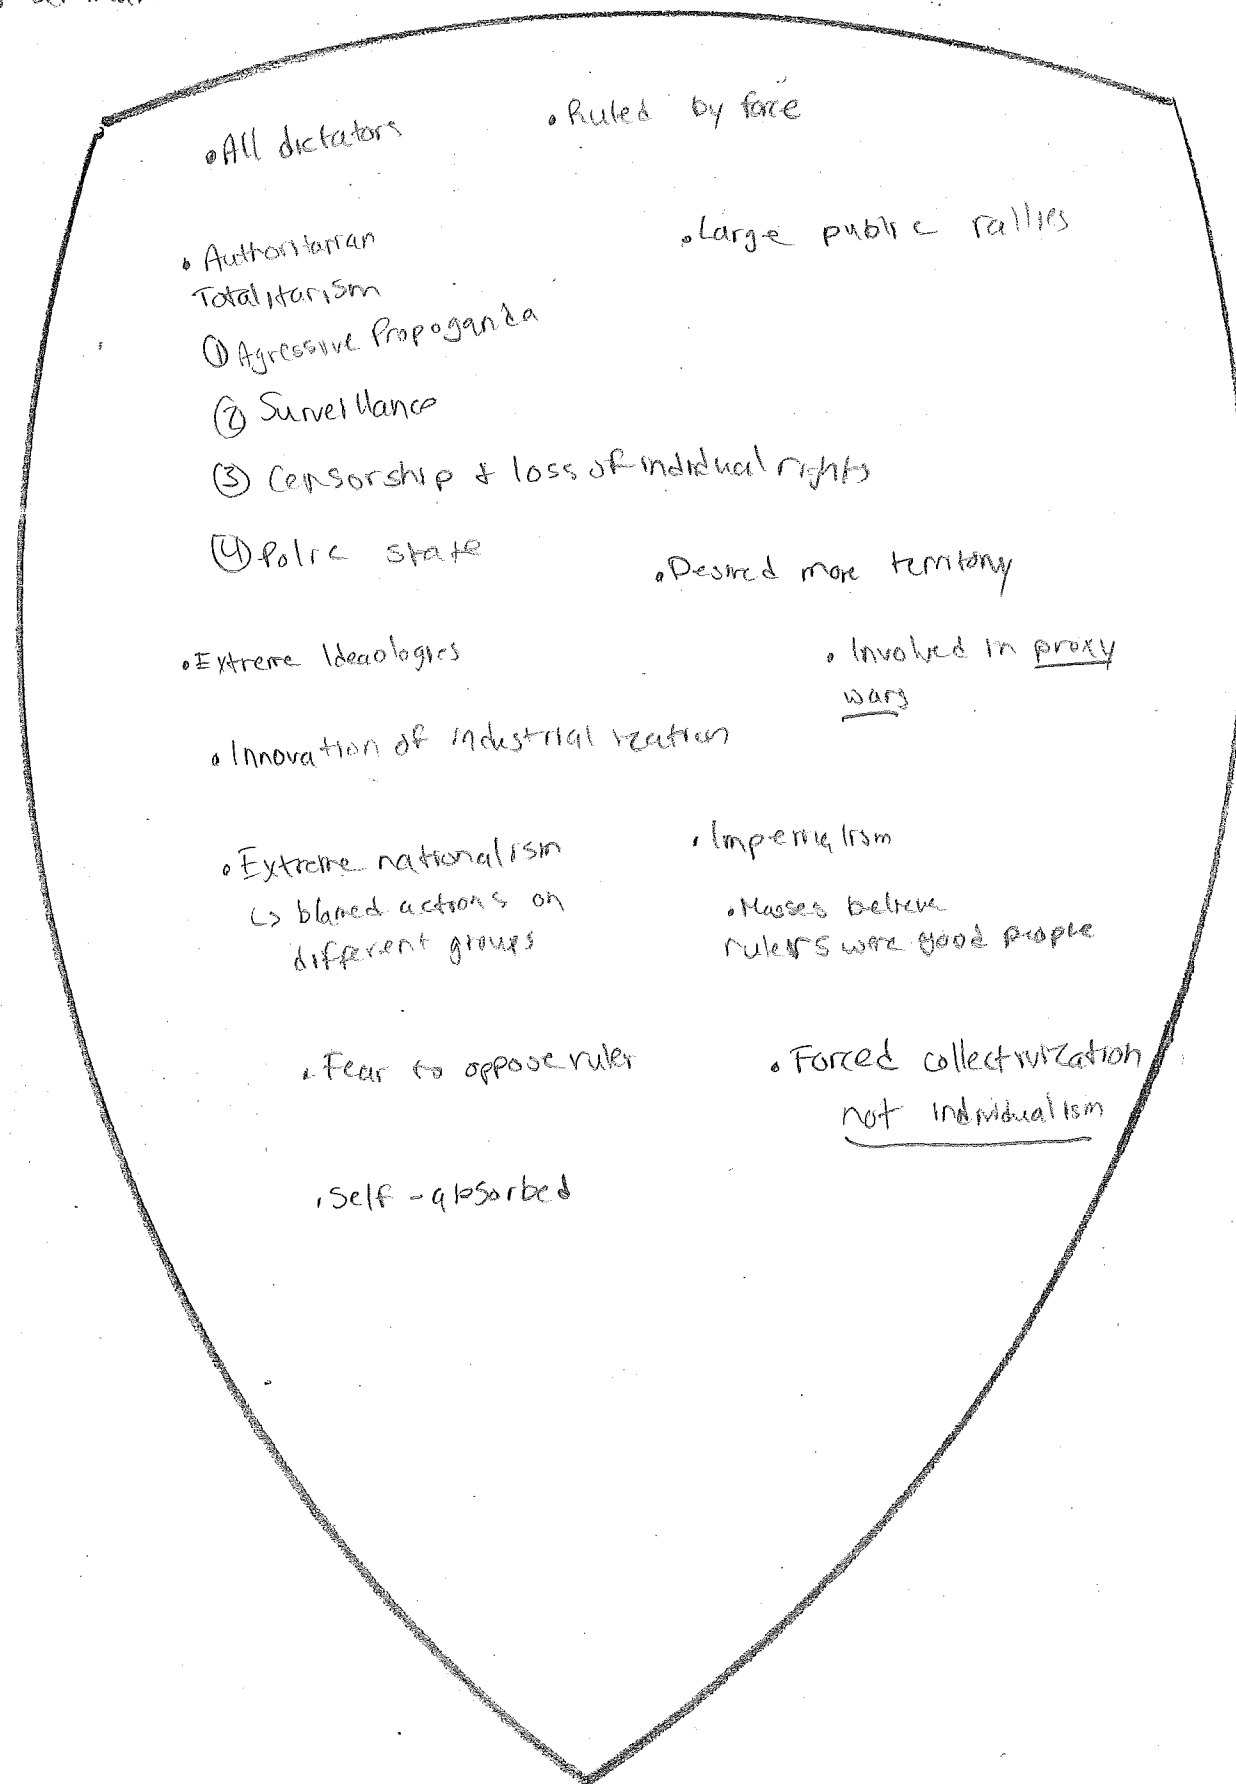 •All dictators
•Ruled by force
•Authoritarian
Totalitarism
•Large public rallies
① Agressive Propoganda
② Surveillance
③ Censorship & loss of indidual rights
④ Polic state
•Desired more territory
•Extreme Ideaologies
•Involved in proxy
wars
•Innovation of industrialization
•Extreme nationalism
↳ blamed actions on
different groups
•Imperialism
•Masses believe
rulers were good people
•Fear to oppose ruler
•Forced collectivization
not individualism
•Self-absorbed